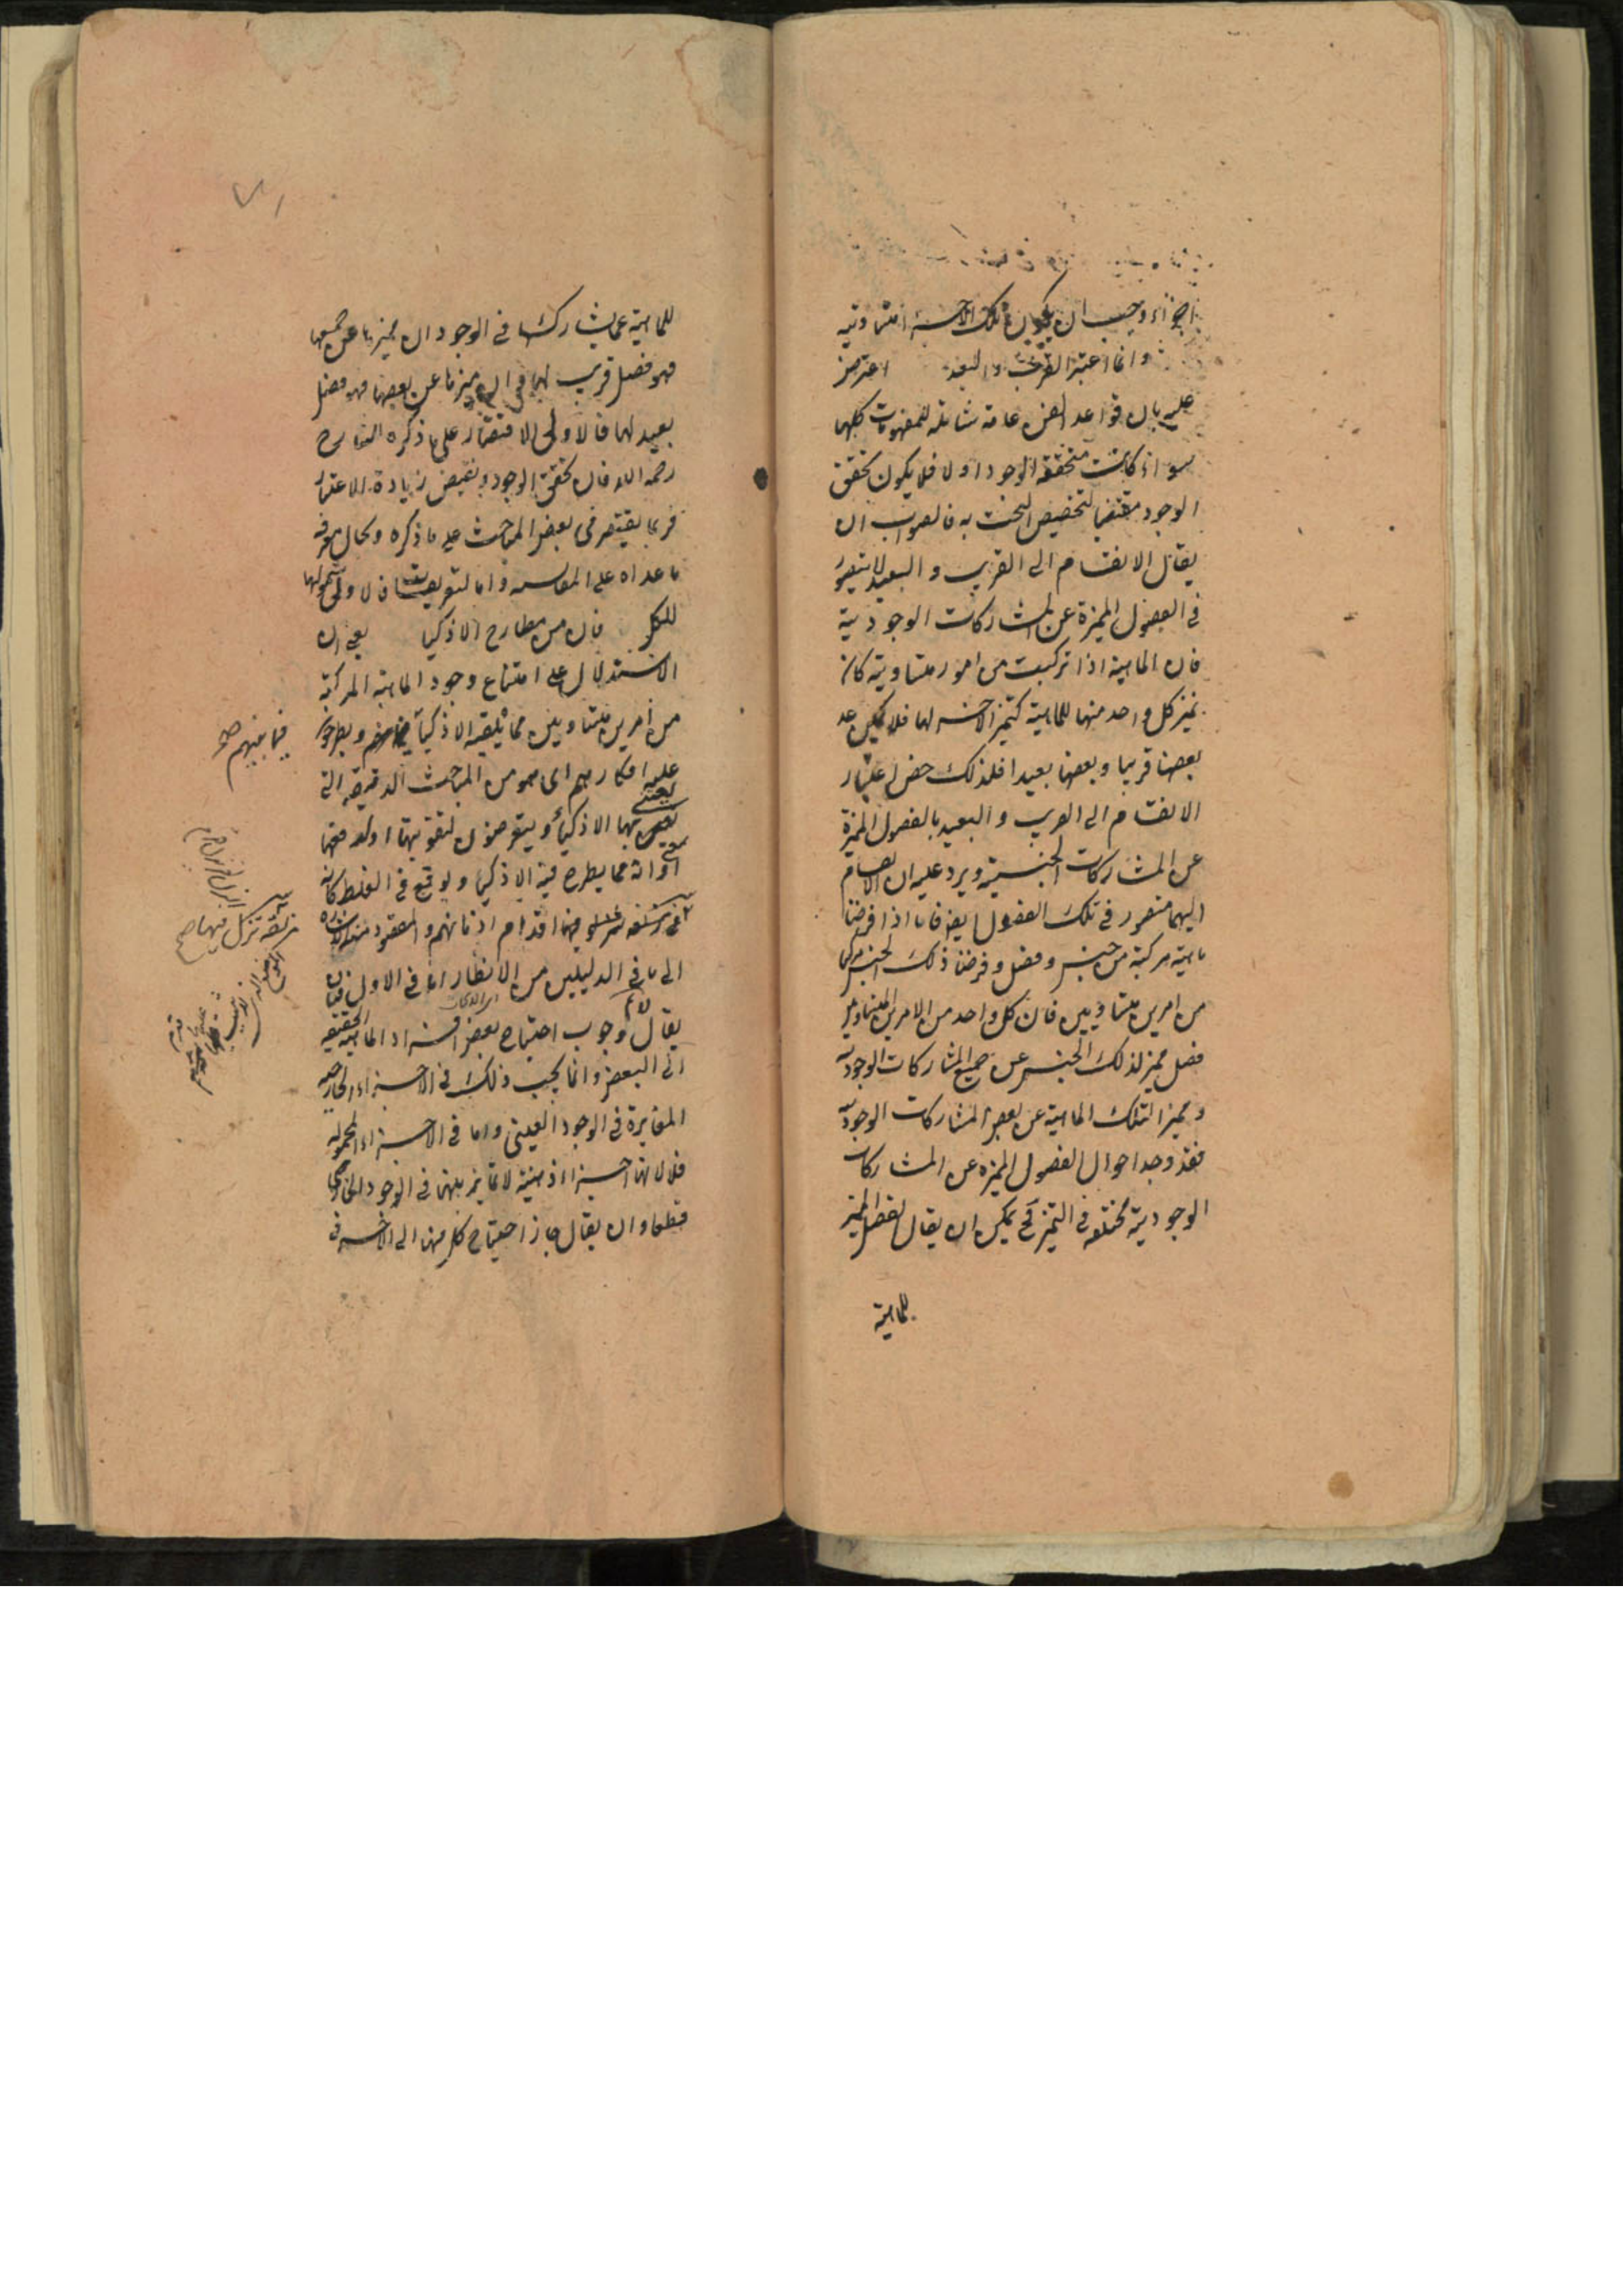 اجزاء وجب ان يكون تلك الاجزاء متساوية
وانما اعتبر القرب والبعد اعترض
عليه بان قواعد الفن عامة شاملة للمفهومات كلها
سواء كانت متحققة الوجود او لا فلا يكون تحقق
الوجود مقتضيا لتخصيص البحث به فالصواب ان
يقال الانقسام الى القريب والبعيد لا يتصور
فى الفصول المميزة عن المشاركات الوجودية
فان الماهية اذا تركبت من امور متساوية كان
تميز كل واحد منها للماهية كتميز الاخر لها فلا يمكن عد
بعضها قريبا وبعضها بعيدا فلذلك خص اعتبار
الانقسام الى القريب والبعيد بالفصول المميزة
عن المشاركات الجنسية ويرد عليه ان الانقسام
اليهما متصور فى تلك الفصول ايضا فانا اذا فرضنا
ماهية مركبة من جنس وفصل وفرضنا ذلك الجنس مركبا
من امرين متساويين فان كل واحد من الامرين المتساويين
فصل مميز لذلك الجنس عن جميع المشاركات الوجودية
ومميز لتلك الماهية عن بعض المشاركات الوجودية
فقد وجد احوال الفصول المميزة عن المشاركات
الوجودية مختلفة فى التميز فح يمكن ان يقال الفصل المميز
للماهية
للماهية عما يشاركها فى الوجود ان ميزها عن جميعها
فهو فصل قريب لها وان ميزها عن بعضها فهو فصل
بعيد لها فالاولى الاقتصار على ما ذكره الشارح
رحمه الله فان تحقق الوجود يقتضى زيادة الاعتبار
فربما يقتصر فى بعض المباحث على ما ذكره ويحال معرفة
ما عداه على المقايسة واما التعريفات فالاولى شمولها
للكل فان من مطارح الاذكيا يعنى ان
الاستدلال على امتناع وجود الماهية المركبة
من امرين متساويين مما يلقيه الاذكياء ويطرحون
فيما بينهم صح
عليه افكارهم اى هو من المباحث الدقيقة التى
يعتنى بها الاذكياء ويتعرضون لتقويتها او لدفعها
او انه مما يطرح فيه الاذكيا ويوقع فى الغلط كانه
مزلقة تزل فيها صح
فيها اقدام اذهانهم والمقصود الاشارة
الى ما فى الدليلين من الانظار اما فى الاول فبان
يقال لا نم وجوب احتياج بعض افراد الماهية الحقيقية
الى البعض وانما يجب ذلك فى الاجزاء الخارجية
المتغايرة فى الوجود العينى واما فى الاجزاء المحمولة
فلا لانها اجزاء ذهنية لا تمايز بينها فى الوجود الخارجى
قطعا وان يقال جاز احتياج كل منهما الى الاخر فى